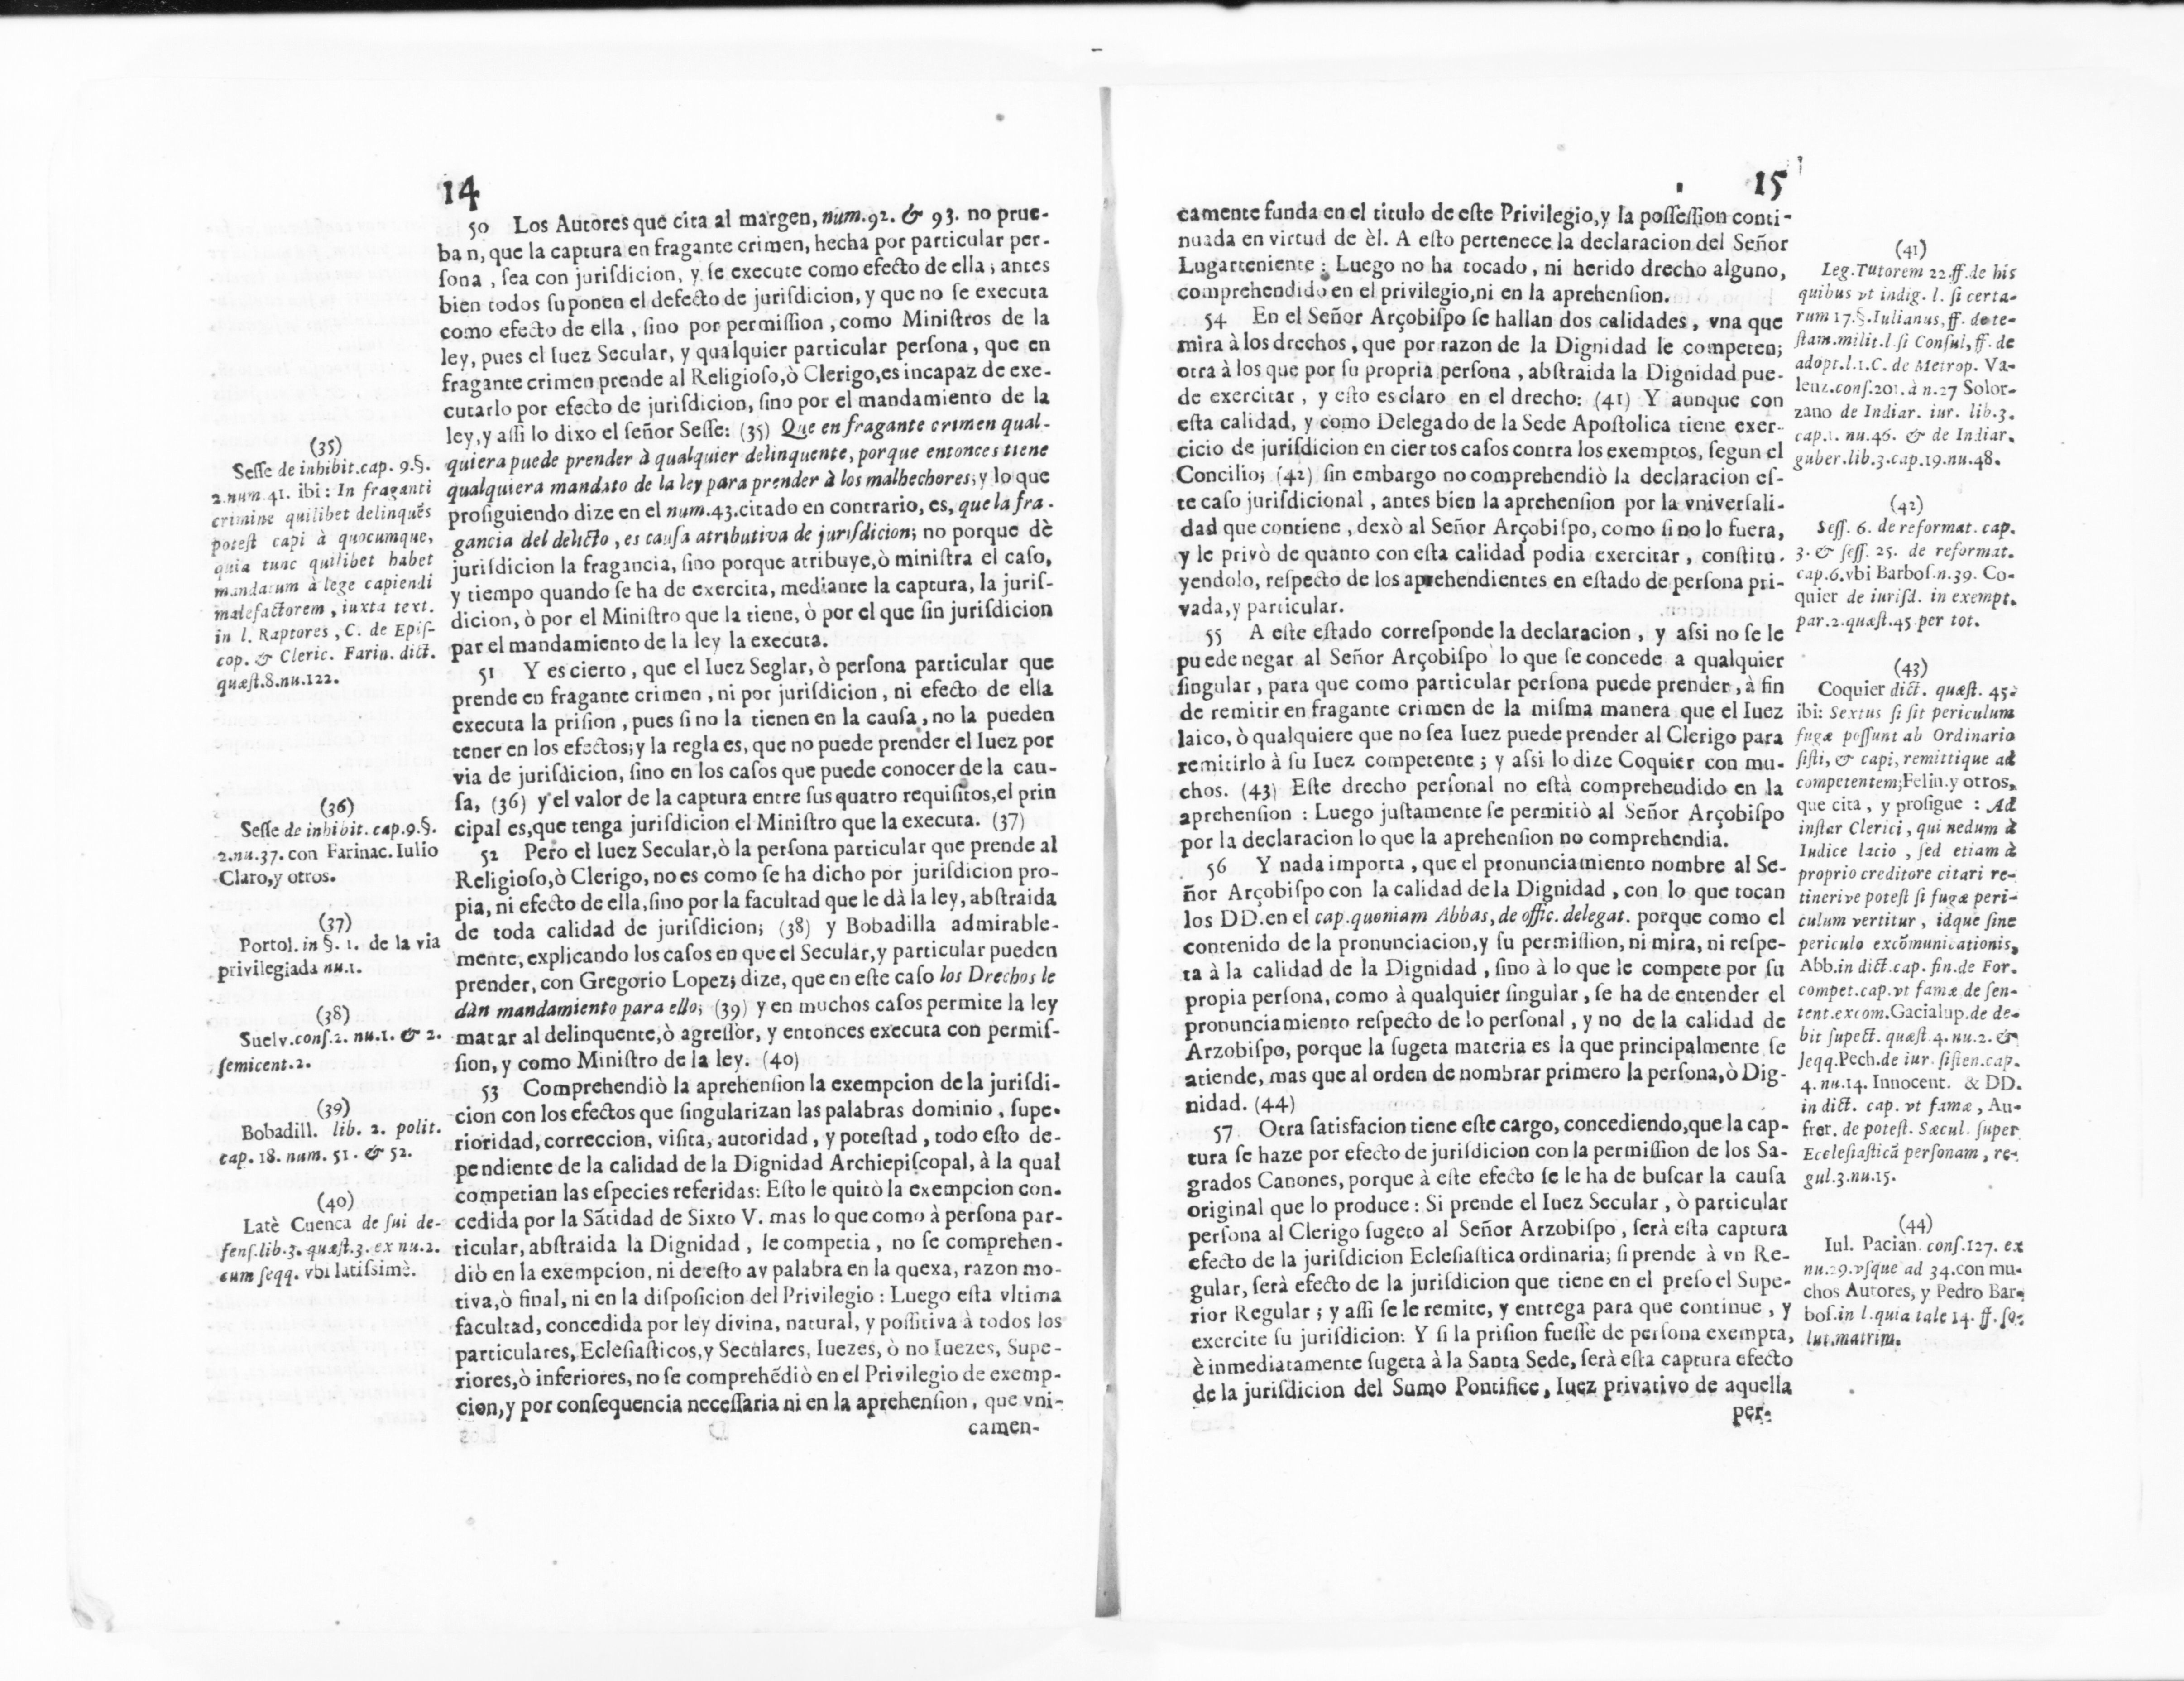 14
50 Los Autores que cita al margen, num.92. & 93. no prue-
ban, que la captura en fragante crimen, hecha por particular per-
ſona, ſea con juriſdicion, y ſe execute como efecto de ella; antes
bien todos ſuponen el defecto de juriſdicion, y que no ſe executa
como efecto de ella, ſino por permiſſion, como Miniſtros de la
ley, pues el Iuez Secular, y qualquier particular perſona, que en
fragante crimen prende al Religioſo,ò Clerigo,es incapaz de exe-
cutarlo por efecto de juriſdicion, ſino por el mandamiento de la
ley,y aſſi lo dixo el ſeñor Seſſe: (35) Que en fragante crimen qual-
quiera puede prender à qualquier delinquente, porque entonces tiene
qualquiera mandato de la ley para prender à los malhechores; y lo que
proſiguiendo dize en el num.43.citado en contrario, es, que la fra-
gancia del delicto, es cauſa atributiva de juriſdicion; no porque dè
juriſdicion la fragancia, ſino porque atribuye,ò miniſtra el caſo,
y tiempo quando ſe ha de exercita, mediante la captura, la juriſ-
dicion, ò por el Miniſtro que la tiene, ò por el que ſin juriſdicion
par el mandamiento de la ley la executa.
51 Y es cierto, que el Iuez Seglar, ò perſona particular que
prende en fragante crimen, ni por juriſdicion, ni efecto de ella
executa la priſion, pues ſi no la tienen en la cauſa, no la pueden
tener en los efectos; y la regla es, que no puede prender el Iuez por
via de juriſdicion, ſino en los caſos que puede conocer de la cau-
ſa, (36) y el valor de la captura entre ſus quatro requiſitos,el prin
cipal es,que tenga juriſdicion el Miniſtro que la executa. (37)
52 Pero el Iuez Secular,ò la perſona particular que prende al
Religioſo,ò Clerigo, no es como ſe ha dicho por juriſdicion pro-
pia, ni efecto de ella,ſino por la facultad que le dà la ley, abſtraida
de toda calidad de juriſdicion; (38) y Bobadilla admirable-
mente, explicando los caſos en que el Secular,y particular pueden
prender, con Gregorio Lopez; dize, que en eſte caſo los Drechos le
dàn mandamiento para ello; (39) y en muchos caſos permite la ley
matar al delinquente,ò agreſſor, y entonces executa con permiſ-
ſion, y como Miniſtro de la ley. (40)
53 Comprehendiò la aprehenſion la exempcion de la juriſdi-
cion con los efectos que ſingularizan las palabras dominio, ſupe-
rioridad, correccion, viſita, autoridad, y poteſtad, todo eſto de-
pendiente de la calidad de la Dignidad Archiepiſcopal, à la qual
competian las eſpecies referidas: Eſto le quitò la exempcion con-
cedida por la Sãtidad de Sixto V. mas lo que como à perſona par-
ticular, abſtraida la Dignidad, le competia, no ſe comprehen-
diò en la exempcion, ni de eſto ay palabra en la quexa, razon mo-
tiva,ò final, ni en la diſpoſicion del Privilegio: Luego eſta vltima
facultad, concedida por ley divina, natural, y poſſitiva à todos los
particulares, Ecleſiaſticos,y Seculares, Iuezes, ò no Iuezes, Supe-
riores,ò inferiores, no ſe comprehẽdiò en el Privilegio de exemp-
cion,y por conſequencia neceſſaria ni en la aprehenſion, que vni-
camen-
(35)
Seſſe de inhibit.cap. 9.§.
2.num.41. ibi: In fraganti
crimine quilibet delinquẽs
poteſt capi à quocumque,
quia tunc quilibet habet
mandatum à lege capiendi
malefactorem, iuxta text.
in l. Raptores, C. de Epiſ-
cop. & Cleric. Farin. dict.
quæſt.8.nu.122.
(36)
Seſſe de inhibit. cap.9.§.
2.nu.37. con Farinac. Iulio
Claro,y otros.
(37)
Portol. in §. 1. de la via
privilegiada nu.1.
(38)
Suelv.conſ.2. nu.1. & 2.
ſemicent.2.
(39)
Bobadill. lib. 2. polit.
cap. 18. num. 51. & 52.
(40)
Latè Cuenca de ſui de-
fenſ.lib.3. quæſt.3. ex nu.2.
cum ſeqq. vbi latiſsimè.
15
camente funda en el titulo de eſte Privilegio,y la poſſeſſion conti-
nuada en virtud de èl. A eſto pertenece la declaracion del Señor
Lugarteniente: Luego no ha tocado, ni herido drecho alguno,
comprehendido en el privilegio,ni en la aprehenſion.
54 En el Señor Arçobiſpo ſe hallan dos calidades, vna que
mira à los drechos, que por razon de la Dignidad le competen;
otra à los que por ſu propria perſona, abſtraida la Dignidad pue-
de exercitar, y eſto es claro en el drecho: (41) Y aunque con
eſta calidad, y como Delegado de la Sede Apoſtolica tiene exer-
cicio de juriſdicion en ciertos caſos contra los exemptos, ſegun el
Concilio; (42) ſin embargo no comprehendiò la declaracion eſ-
te caſo juriſdicional, antes bien la aprehenſion por la vniverſali-
dad que contiene, dexò al Señor Arçobiſpo, como ſi no lo fuera,
y le privò de quanto con eſta calidad podia exercitar, conſtitu-
yendolo, reſpecto de los aprehendientes en eſtado de perſona pri-
vada,y particular.
55 A eſte eſtado correſponde la declaracion, y aſsi no ſe le
puede negar al Señor Arçobiſpo lo que ſe concede a qualquier
ſingular, para que como particular perſona puede prender, à fin
de remitir en fragante crimen de la miſma manera que el Iuez
laico, ò qualquiere que no ſea Iuez puede prender al Clerigo para
remitirlo à ſu Iuez competente; y aſsi lo dize Coquier con mu-
chos. (43) Eſte drecho perſonal no eſtà comprehendido en la
aprehenſion: Luego juſtamente ſe permitiò al Señor Arçobiſpo
por la declaracion lo que la aprehenſion no comprehendia.
56 Y nada importa, que el pronunciamiento nombre al Se-
ñor Arçobiſpo con la calidad de la Dignidad, con lo que tocan
los DD.en el cap.quoniam Abbas, de offic. delegat. porque como el
contenido de la pronunciacion,y ſu permiſſion, ni mira, ni reſpe-
ta à la calidad de la Dignidad, ſino à lo que le compete por ſu
propia perſona, como à qualquier ſingular, ſe ha de entender el
pronunciamiento reſpecto de lo perſonal, y no de la calidad de
Arzobiſpo, porque la ſugeta materia es la que principalmente ſe
atiende, mas que al orden de nombrar primero la perſona,ò Dig-
nidad. (44)
57 Otra ſatisfacion tiene eſte cargo, concediendo,que la cap-
tura ſe haze por efecto de juriſdicion con la permiſſion de los Sa-
grados Canones, porque à eſte efecto ſe le ha de buſcar la cauſa
original que lo produce: Si prende el Iuez Secular, ò particular
perſona al Clerigo ſugeto al Señor Arzobiſpo, ſerà eſta captura
efecto de la juriſdicion Ecleſiaſtica ordinaria; ſi prende à vn Re-
gular, ſerà efecto de la juriſdicion que tiene en el preſo el Supe-
rior Regular; y aſſi ſe le remite, y entrega para que continue, y
exercite ſu juriſdicion: Y ſi la priſion fueſſe de perſona exempta,
è inmediatamente ſugeta à la Santa Sede, ſerà eſta captura efecto
de la juriſdicion del Sumo Pontifice, Iuez privativo de aquella
per-
(41)
Leg.Tutorem 22.ff.de his
quibus vt indig. l. ſi certa-
rum 17.§.Iulianus,ff. de te-
ſtam.milit.l.ſi Conſul,ff. de
adopt.l.1.C. de Metrop. Va-
lenz.conſ.201.à n.27 Solor-
zano de Indiar. iur. lib.3.
cap.1. nu.46. & de Indiar.
guber.lib.3.cap.19.nu.48.
(42)
Seſſ. 6. de reformat. cap.
3. & ſeſſ. 25. de reformat.
cap.6.vbi Barboſ.n.39. Co-
quier de iuriſd. in exempt.
par.2.quæſt.45.per tot.
(43)
Coquier dict. quæſt. 45.
ibi: Sextus ſi ſit periculum
fugæ poſſunt ab Ordinario
ſiſti, & capi, remittique ad
competentem;Felin.y otros,
que cita, y proſigue: Ad
inſtar Clerici, qui nedum à
Iudice lacio, ſed etiam à
proprio creditore citari re-
tinerive poteſt ſi fugæ peri-
culum vertitur, idque ſine
periculo excõmunicationis,
Abb.in dict.cap. fin.de For.
compet.cap.vt famæ de ſen-
tent.excom.Gacialup.de de-
bit ſupect. quæſt.4. nu.2. &
ſeqq.Pech.de iur. ſiſten.cap.
4. nu.14. Innocent. & DD.
in dict. cap. vt famæ, Au-
frer. de poteſt. Sæcul. ſuper
Eccleſiaſticã perſonam, re-
gul.3.nu.15.
(44)
Iul. Pacian. conſ.127. ex
nu.29.vſque ad 34.con mu-
chos Autores, y Pedro Bar-
boſ.in l.quia tale 14. ff. ſo-
lut.matrim.